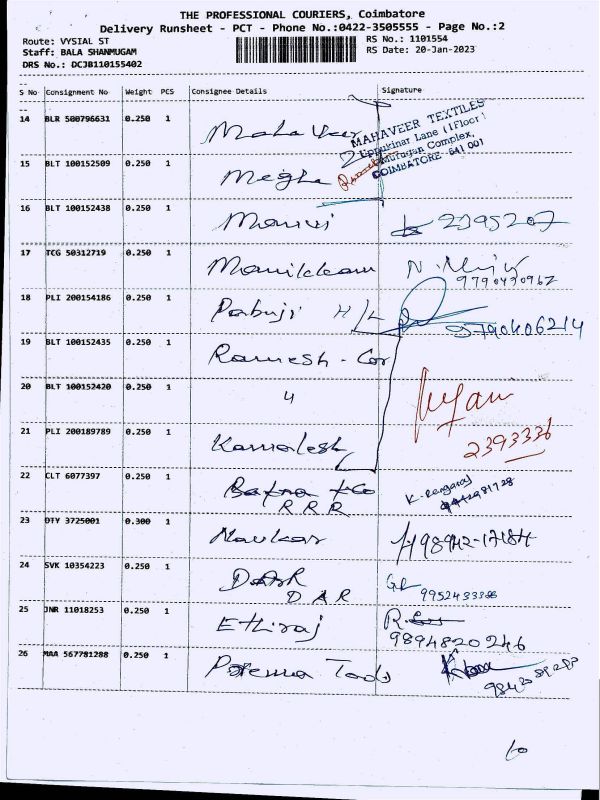 THE PROFESSIONAL COURIERS, Coimbatore
Delivery Runsheet - PCT - Phone No.:0422-3505555 - Page No.:2
Route: VYSIAL ST
RS No.: 1101554
Staff: BALA SHANMUGAM
RS Date: 20-Jan-2023
DRS No.: DCJB110155402
S No Consignment No Weight PCS Consignee Details Signature
14 BLR 500796631 0.250 1 Mahaveer
MAHAVEER TEXTILES
Uppukinar Lane (I Floor)
Murugan Complex,
COIMBATORE-641 001
15 BLT 100152509 0.250 1 Megha
16 BLT 100152438 0.250 1 Manvi 2395207
17 TCG 50312719 0.250 1 Manikkam N.
9790490962
18 PLI 200154186 0.250 1 Pabuji H/L
9790406214
19 BLT 100152435 0.250 1 Ramesh - Cor
20 BLT 100152420 0.250 1 4
21 PLI 200189789 0.250 1 Kamalesh
2393336
22 CLT 6077397 0.250 1 K. Rengaraj
RRR
23 DTY 3725001 0.300 1 Navkar 98942-17184
24 SVK 10354223 0.250 1 DAR
DAR 9952433366
25 JNR 11018253 0.250 1 Ethiraj R.
9894820246
26 MAA 567781288 0.250 1 Tads